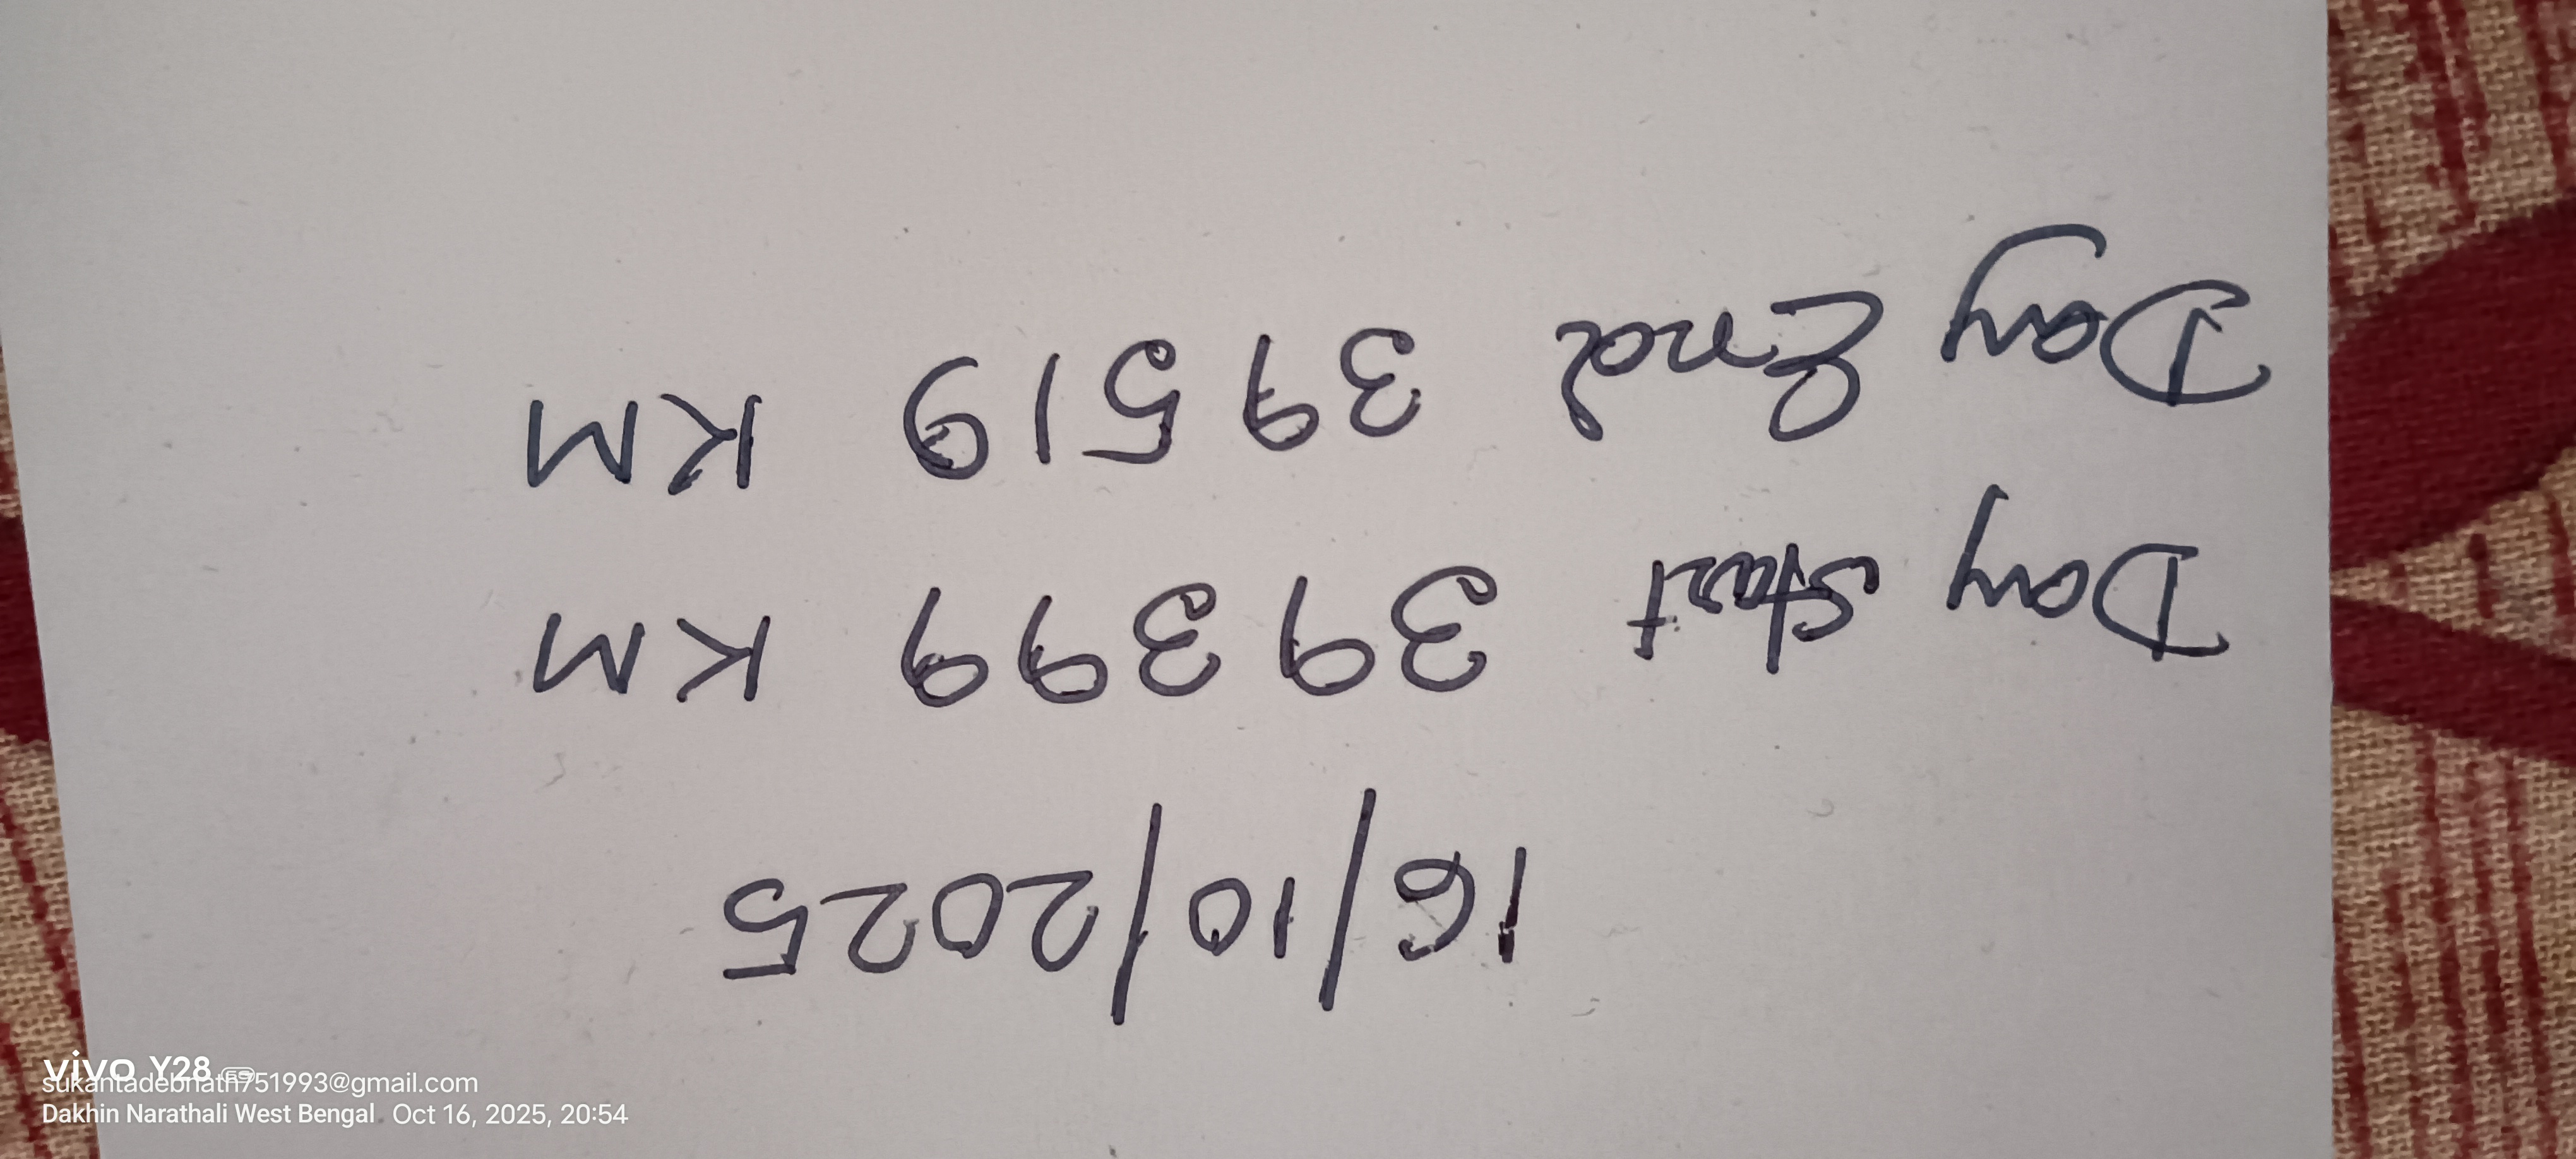 16/10/2025
Day Start 39399 KM
Day End 39519 KM
vivo Y28 5G
sukantadebnath751993@gmail.com
Dakhin Narathali West Bengal Oct 16, 2025, 20:54